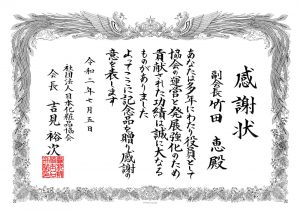 感謝状
副会長 竹田 恵 殿
あなたは多年にわたり役員として
協会の運営と発展強化のため
貢献された功績は誠に大なる
ものがありました
よってここに記念品を贈り感謝の
意を表します
令和二年七月五日
社団法人日本化粧品協会
会長 吉見裕次